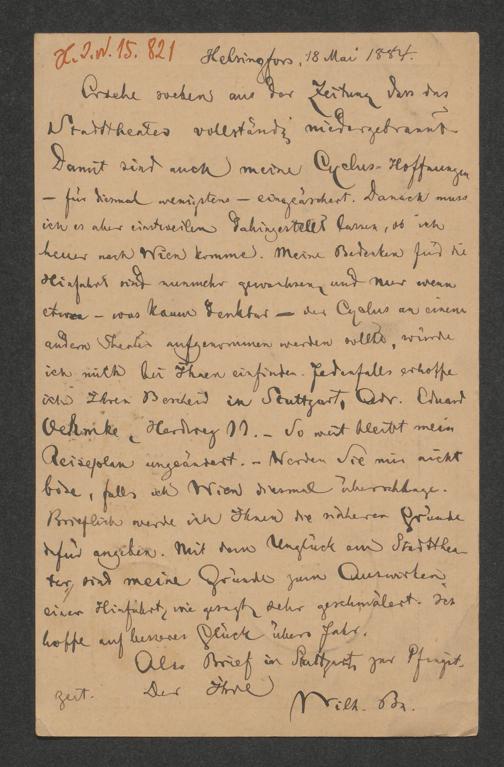 H. I. N. 15. 821
Helsingfors, 18 Mai 1884.
Ersehe soeben aus der Zeitung dass das
Stadttheater vollständig niedergebrannt.
Damit sind auch meine Cyclus-Hoffnungen
– für diesmal wenigstens – eingeäschert. Danach muss
ich es aber einstweilen dahingestellt lassen, ob ich
heuer nach Wien komme. Meine Bedenken für die
Hinfahrt sind nunmehr gewachsen, und nur wenn
etwa – was kaum denkbar – der Cyclus an einem
andern Theater aufgenommen werden sollte, würde
ich mich bei Ihnen einfinden. Jedenfalls erhoffe
ich Ihren Bescheid in Stuttgart, Adr. Eduard
Herdweg 11. – So weit bleibt mein
Reiseplan ungeändert. – Werden Sie mir nicht
böse, falls ich Wien diesmal überschlage.
Brieflich werde ich Ihnen die näheren Gründe
dafür angeben. Mit dem Unglück am Stadtthea-
ter, sind meine Gründe zum Auswirken
einer Hinfahrt, wie gesagt, sehr geschmälert. Ich
hoffe auf besseres Glück übers Jahr.
Also Brief in Stuttgart, zur Pfingst-
zeit. Der Ihre
Wilh. Bn.